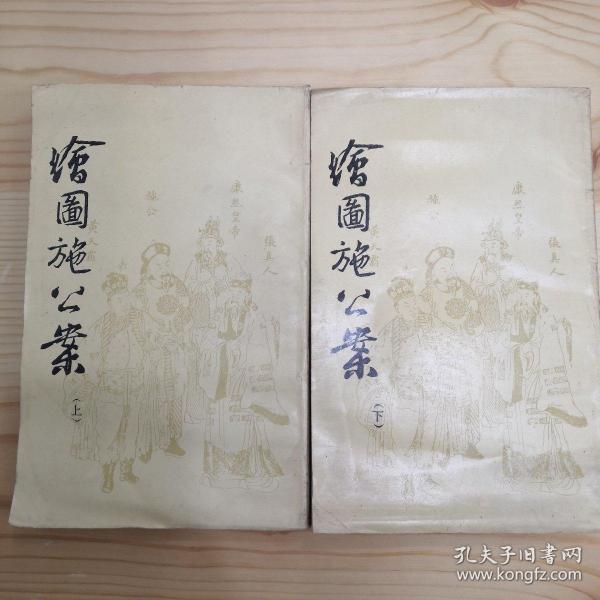 繪圖施公案
(上)
康熙皇帝
張真人
施公
黃天霸
繪圖施公案
(下)
康熙皇帝
張真人
施公
黃天霸
孔夫子旧书网
www.kongfz.com